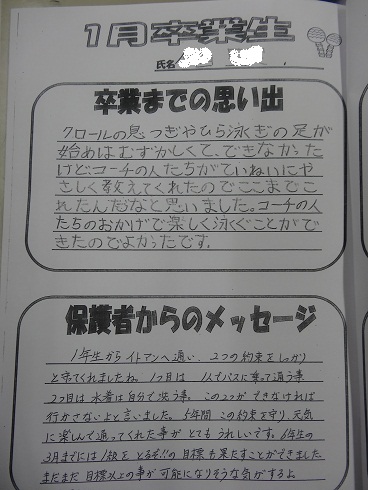 1月卒業生
氏名
卒業までの思い出
クロールの息つぎやひら泳ぎの足が
始めはむずかしくて、できなかった
けどコーチの人たちがていねいにや
さしく教えてくれたのでここまでこ
れたんだなと思いました。コーチの人
たちのおかげで楽しく泳ぐことがで
きたのでよかったです。
保護者からのメッセージ
1年生からイトマンへ通い、2つの約束をしっかり
と守てくれましたね。1つ目は 1人でバスに乗って通う事
2つ目は 水着は自分で洗う事。この2つができなければ
行かさないよと言いました。5年間 この約束を守り、元気
に楽しんで通ってくれた事が とてもうれしいです。6年生の
3月までには1級を とるぞ!!の目標も果たすことができました
まだまだ 目標以上の事が可能になりそうな気がするよ